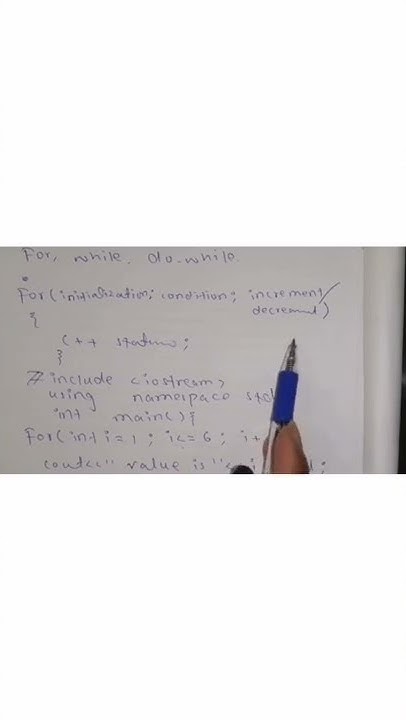 For, while, do-while
For(initialization; condition; increment/
decrement)
{
C++ statem;
}
#include <iostream>
using namespace std
int main(){
For(int i=1; i<=6; i+
cout<<" value is "<< i